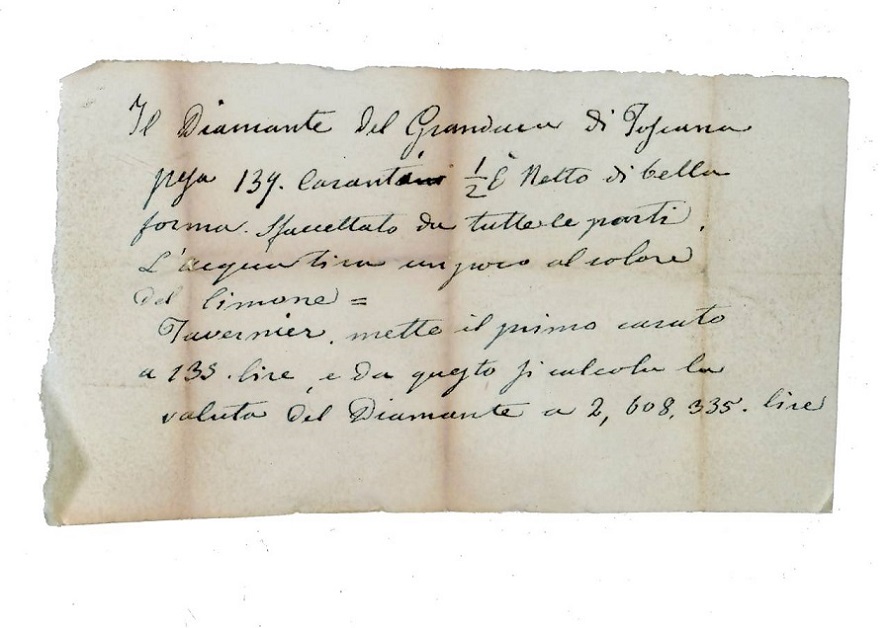 Il Diamante del Granduca di Toscana
pesa 139. Caranti 1/2 È Netto di bella
forma. Sfaccettato da tutte le parti.
L'acqua tira un poco al colore
del limone =
Tavernier, mette il primo carato
a 135 lire, e da questo si calcola la
valuta del Diamante a 2,608,335. lire